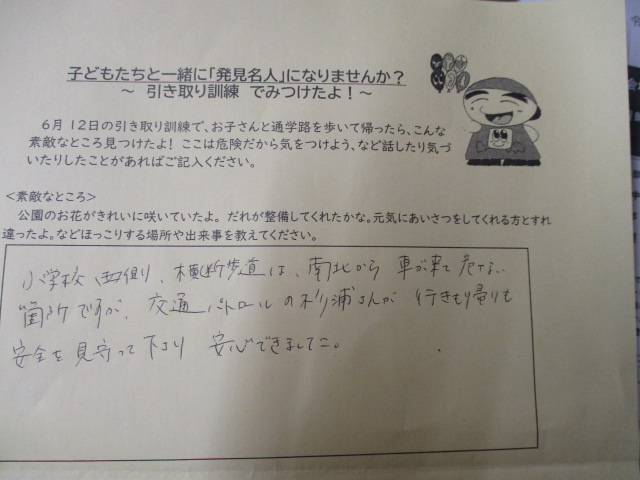 子どもたちと一緒に「発見名人」になりませんか？
～ 引き取り訓練 でみつけたよ！～
６月 12日の引き取り訓練で、お子さんと通学路を歩いて帰ったら、こんな
素敵なところ見つけたよ！ ここは危険だから気をつけよう、など話したり気づ
いたりしたことがあればご記入ください。
＜素敵なところ＞
公園のお花がきれいに咲いていたよ。だれが整備してくれたかな。元気にあいさつをしてくれる方とすれ
違ったよ。などほっこりする場所や出来事を教えてください。
小学校 西側、横断歩道は、南北から 車が来て 危ない
箇所ですが、交通パトロールの杉浦さんが 行きも帰りも
安全を見守って下さり 安心できました。